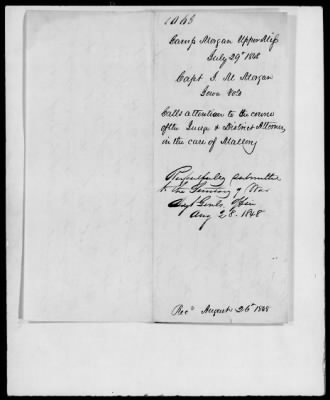 Camp Morgan Upper Miss
July 29th 1848
Capt J. M. Morgan
Iowa Vols
Calls attention to the
of the Judge & District Attorney
in the case of Mallory
Respectfully submitted
to the Secretary of War
Adjt Genls Office
Aug 28. 1848
Recd August 26th 1848